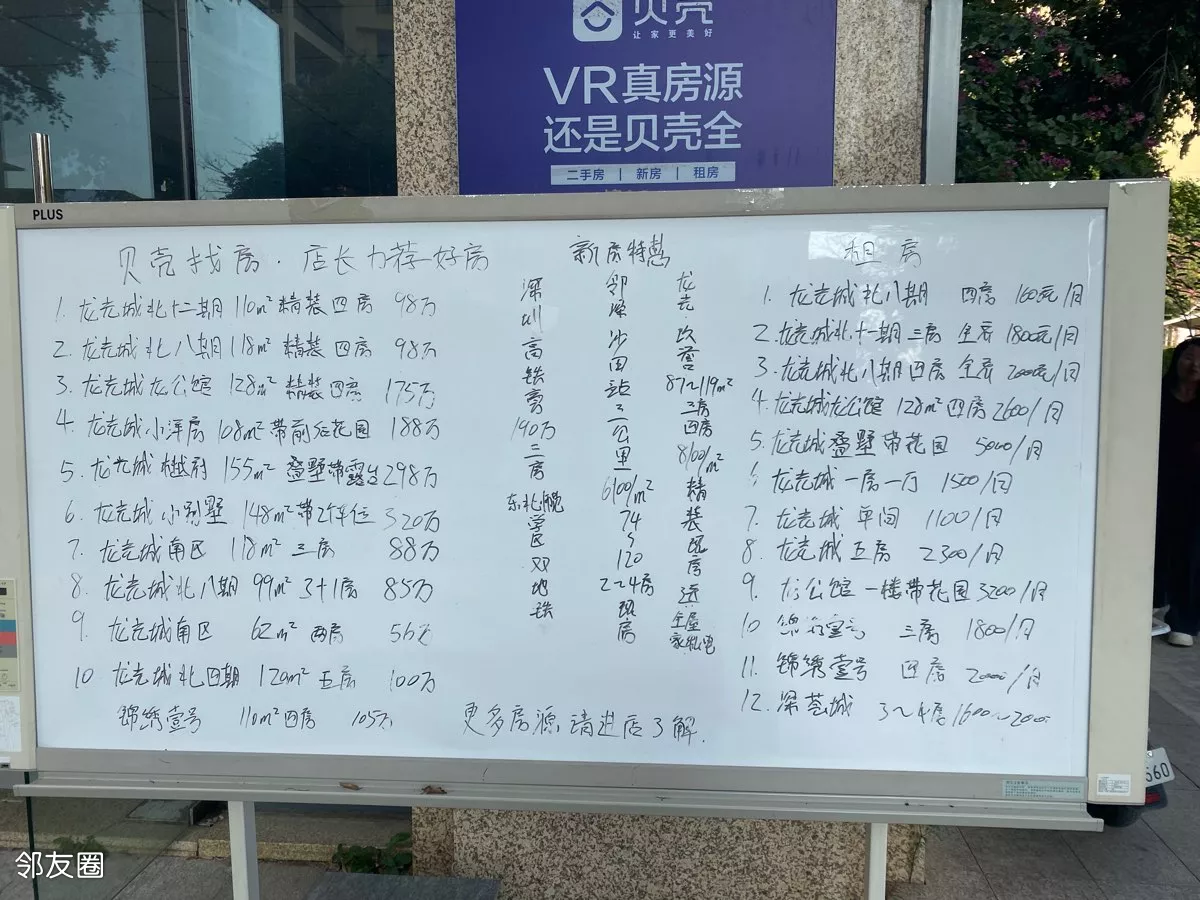 贝壳
让家更美好
VR真房源
还是贝壳全
二手房 | 新房 | 租房
PLUS
贝壳找房·店长力荐好房
1. 龙光城北十二期 110m² 精装四房 98万
2. 龙光城北八期 118m² 精装四房 98万
3. 龙光城龙公馆 128m² 精装四房 175万
4. 龙光城小洋房 108m² 带前后花园 188万
5. 龙光城樾府 155m² 叠墅带露台 298万
6. 龙光城小别墅 148m² 带2个车位 320万
7. 龙光城南区 118m² 三房 88万
8. 龙光城北八期 99m² 3+1房 85万
9. 龙光城南区 62m² 两房 56万
10 龙光城北四期 120m² 五房 100万
锦绣壹号 110m² 四房 105万
新房特惠
深圳高铁旁190万三房东北悦学区双地铁
邻深沙田站二公里6100/m² 74~120 2~4房现房
龙光玖誉87~119m²三房四房8100/m²精装现房送全屋家私电
更多房源请进店了解.
租房
1. 龙光城北八期 四房 160元/月
2. 龙光城北十一期 三房 全齐 1800元/月
3. 龙光城北八期 四房 全齐 2000元/月
4. 龙光城龙公馆 128m² 四房 2600/月
5. 龙光城叠墅带花园 5000/月
龙光城一房一厅 1500/月
7. 龙光城 单间 1100/月
8. 龙光城五房 2300/月
9. 龙公馆一楼带花园 3200/月
10 锦绣壹号 三房 1800/月
11. 锦绣壹号 四房 2000/月
12. 深荟城 3~4房 1600~2000
560
邻友圈